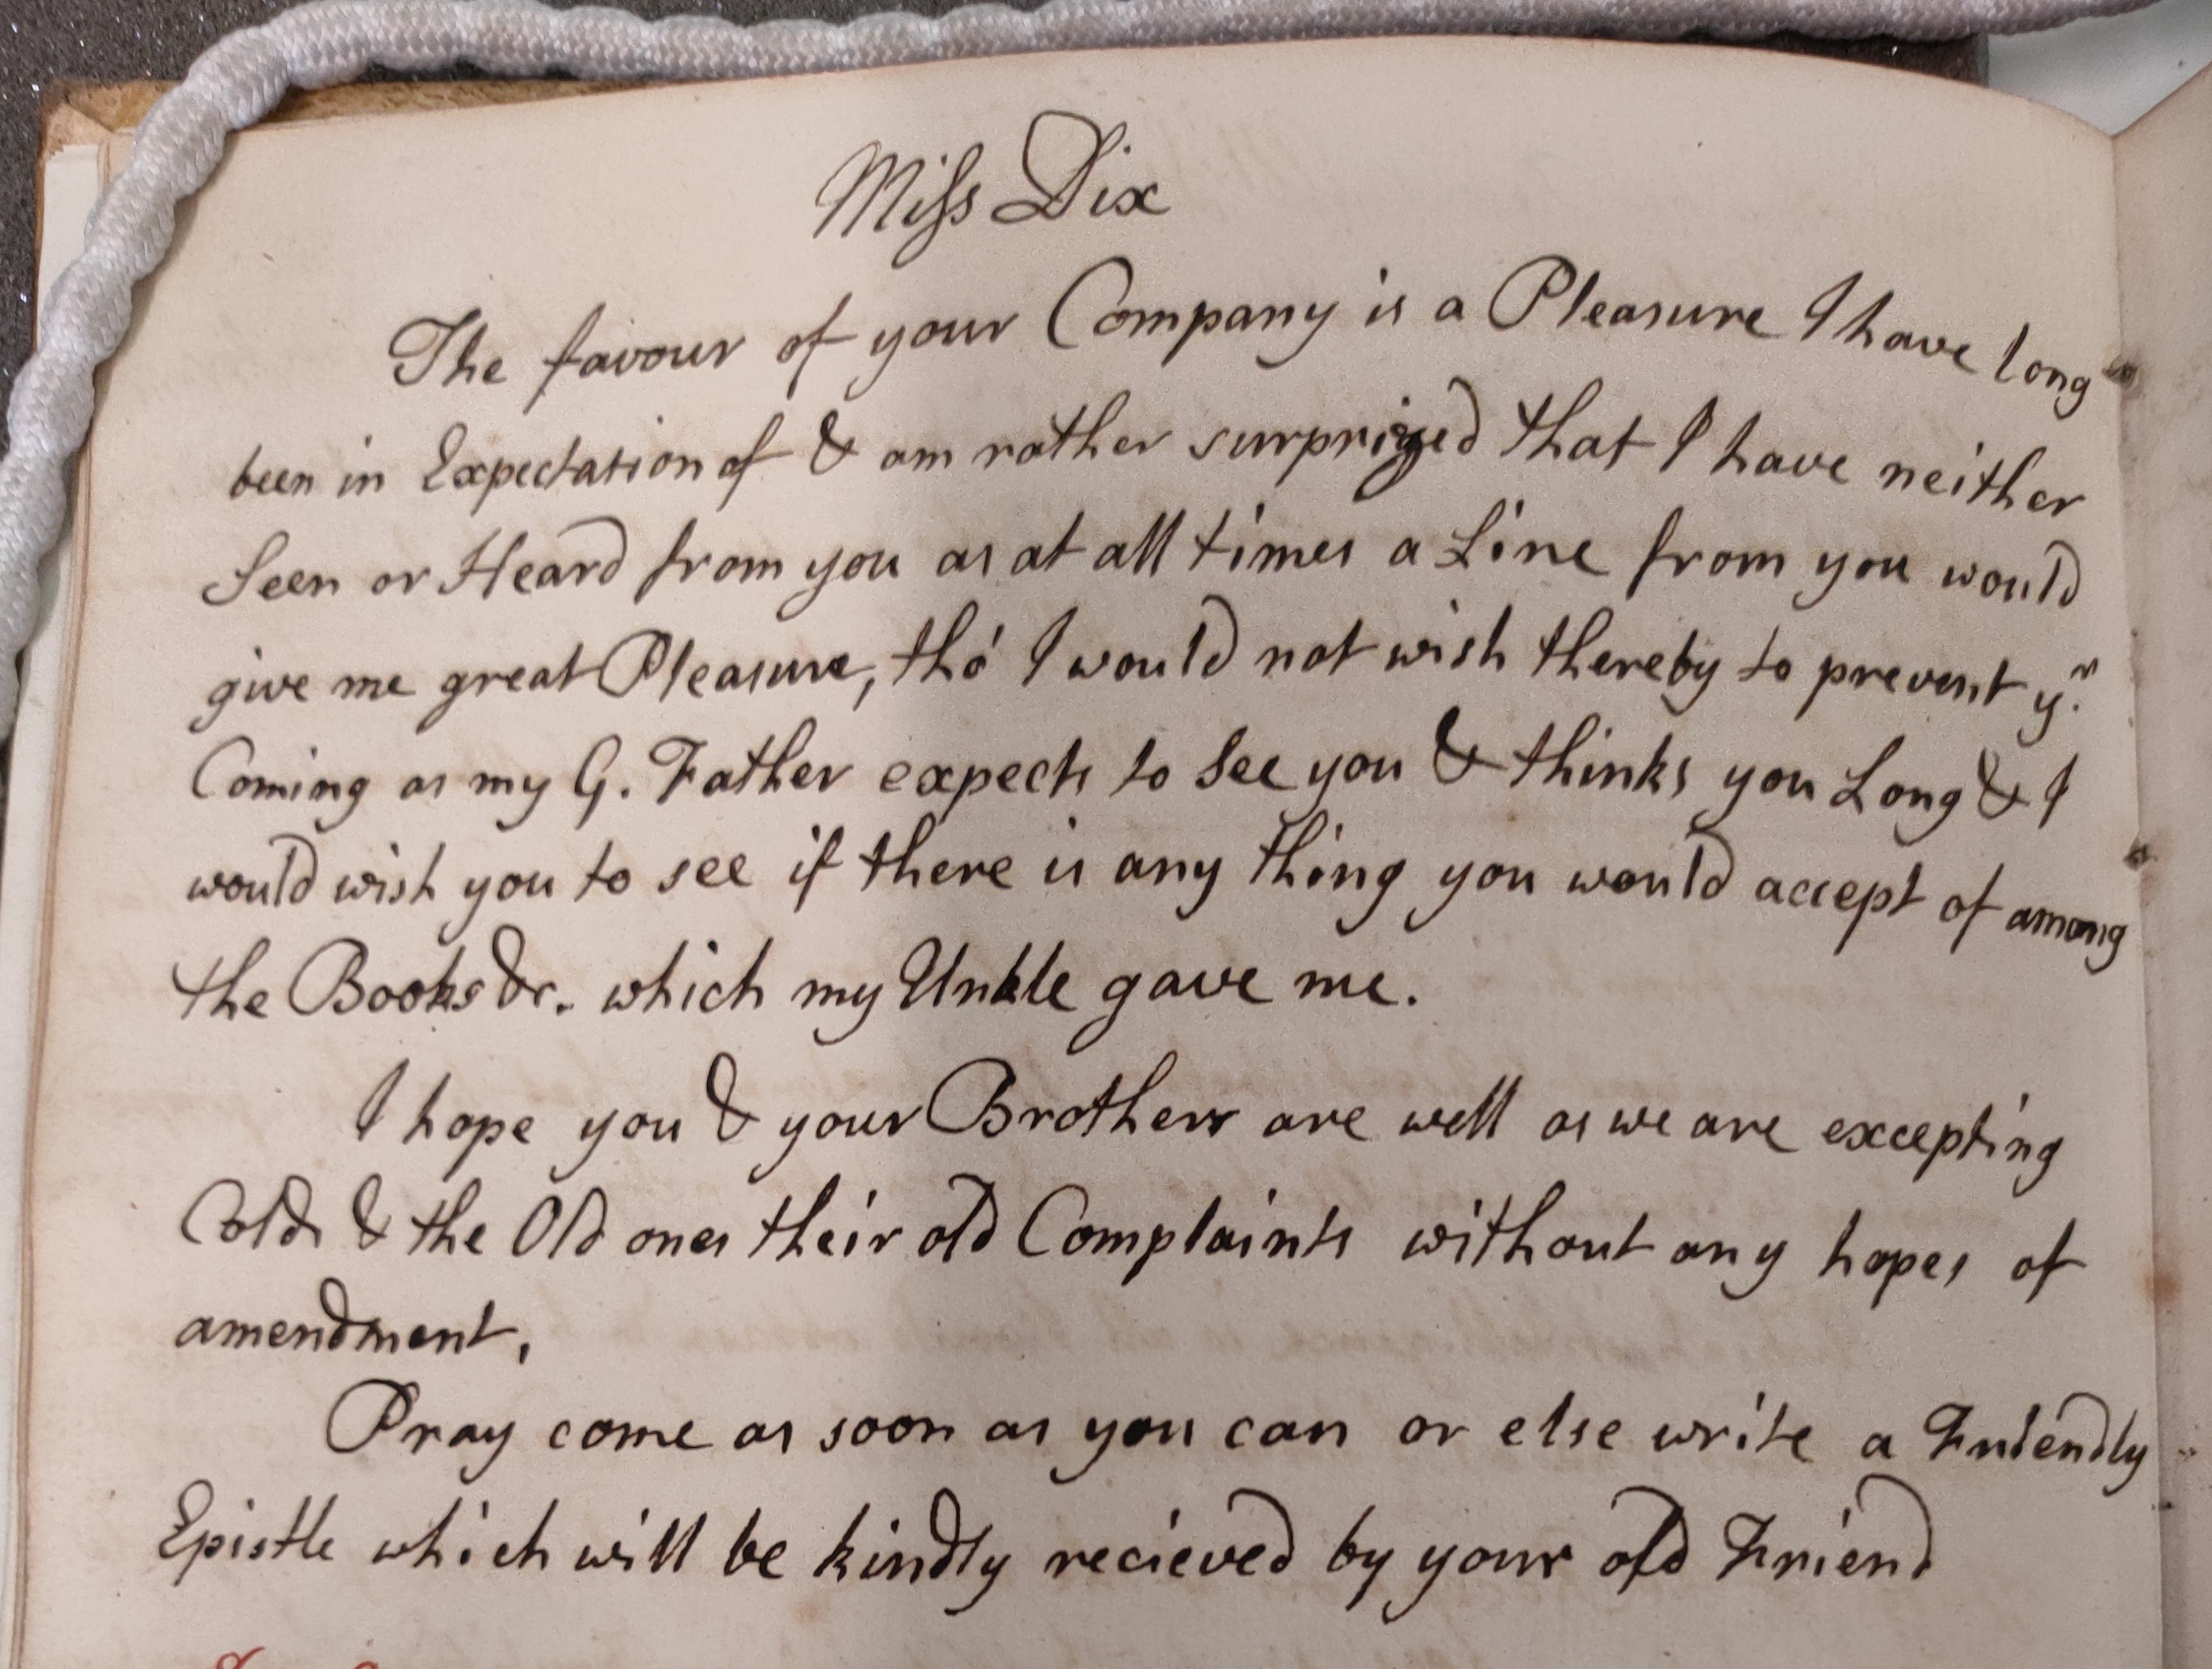 Miss Dix
The favour of your Company is a Pleasure I have long
been in Expectation of & am rather surprized that I have neither
Seen or Heard from you as at all times a Line from you would
give me great Pleasure, tho' I would not wish thereby to prevent yr.
Coming as my G. Father expects to See you & thinks you Long & I
would wish you to see if there is any thing you would accept of among
the Books &c. which my Unkle gave me.
I hope you & your Brothers are well as we are excepting
Colds & the Old ones their old Complaints without any hopes of
amendment,
Pray come as soon as you can or else write a Friendly
Epistle which will be kindly recieved by your old Friend